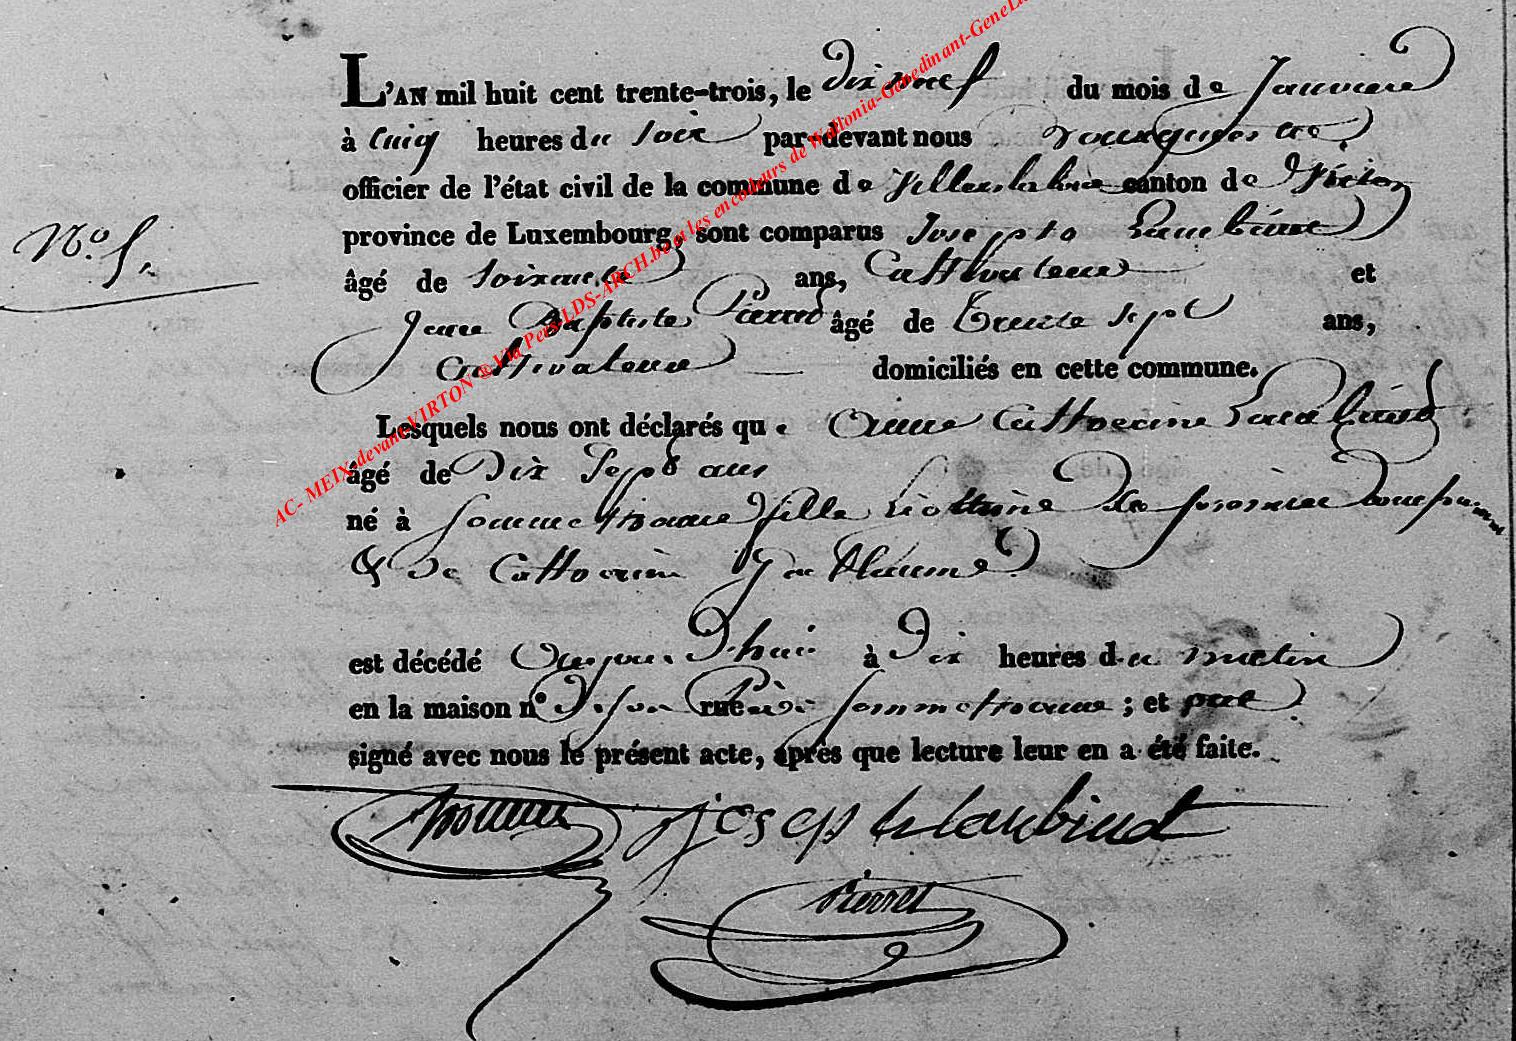 L'AN mil huit cent trente-trois, le dix neuf du mois de Janvier
à Cinq heures du soir par-devant nous
officier de l'état civil de la commune de Villers la loue canton de Virton
province de Luxembourg, sont comparus Joseph Laubiint
N.o 5.
âgé de soixante ans, Cultivateur et
Jean Baptiste Pierret âgé de Trente sept ans,
Cultivateur domiciliés en cette commune.
Lesquels nous ont déclarés que Anne Catherine
âgé de Dix Sept ans
né à Sommethonne fille du premier comparant
& de Catherine
est décédé Aujourd'hui à Dix heures du matin
en la maison n° de son Père rue à Sommethonne ; et
signé avec nous le présent acte, après que lecture leur en a été faite.
joseph laubiut
Pierret
AC- MEIX-devant-VIRTON ® Via Pers-LDS-ARCH.be et les encodeurs de Wallonia-Genedinant-GeneLu